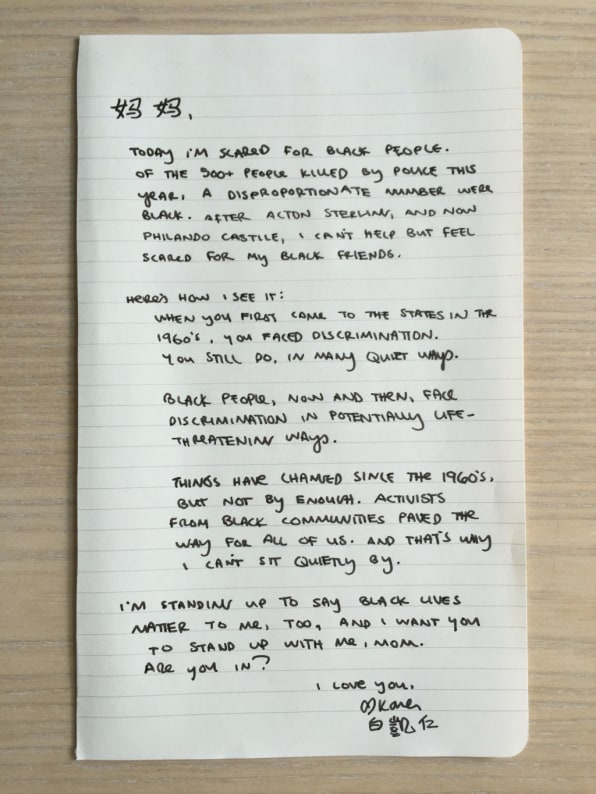 妈妈,
TODAY I'M SCARED FOR BLACK PEOPLE.
OF THE 500+ PEOPLE KILLED BY POLICE THIS
YEAR, A DISPROPORTIONATE NUMBER WERE
BLACK. AFTER ALTON STERLING, AND NOW
PHILANDO CASTILE, I CAN'T HELP BUT FEEL
SCARED FOR MY BLACK FRIENDS.
HERE'S HOW I SEE IT:
WHEN YOU FIRST CAME TO THE STATES IN THE
1960'S, YOU FACED DISCRIMINATION.
YOU STILL DO, IN MANY QUIET WAYS.
BLACK PEOPLE, NOW AND THEN, FACE
DISCRIMINATION IN POTENTIALLY LIFE-
THREATENING WAYS.
THINGS HAVE CHANGED SINCE THE 1960'S,
BUT NOT BY ENOUGH. ACTIVISTS
FROM BLACK COMMUNITIES PAVED THE
WAY FOR ALL OF US. AND THAT'S WHY
I CAN'T SIT QUIETLY BY.
I'M STANDING UP TO SAY BLACK LIVES
MATTER TO ME, TOO, AND I WANT YOU
TO STAND UP WITH ME, MOM.
ARE YOU IN?
I LOVE YOU,
白凱仁